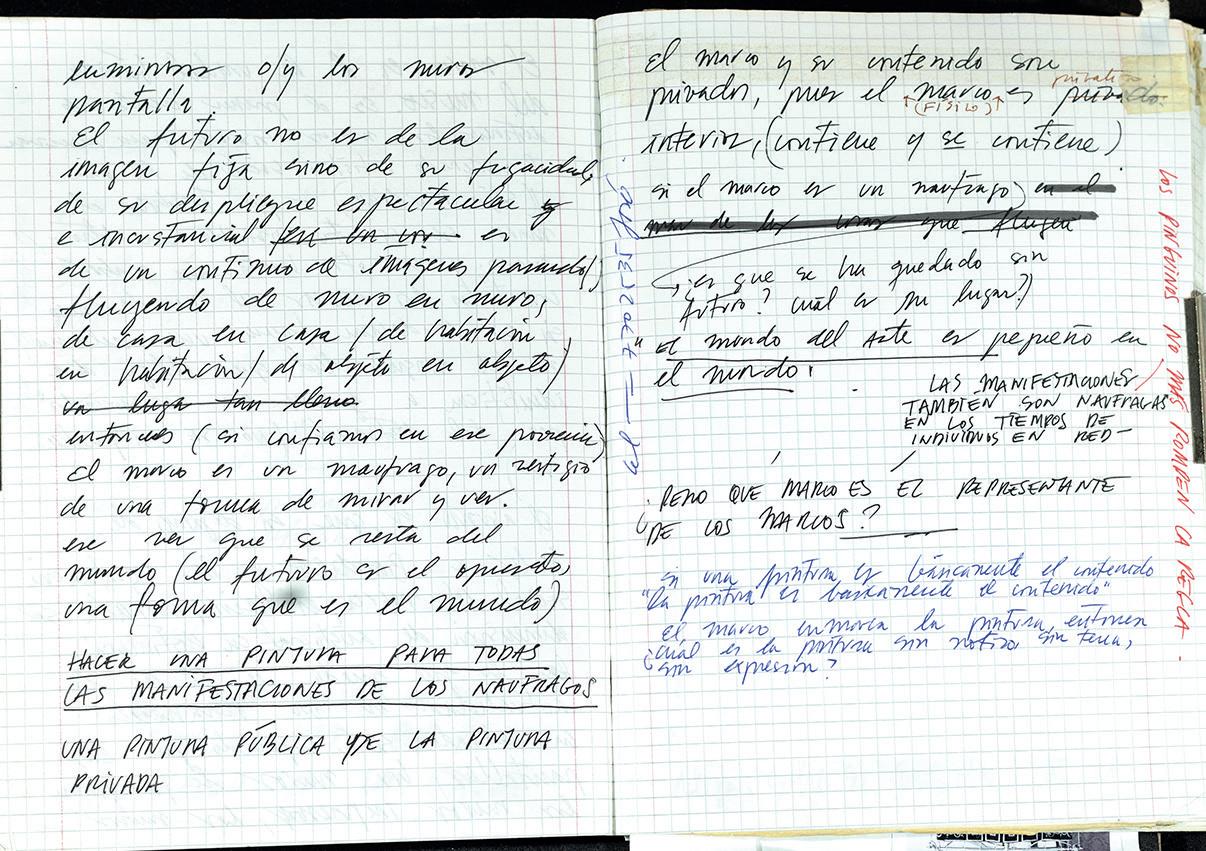 luminosos o/y los muros
pantalla.
El futuro no es de la
imagen fija sino de su fugacidad,
de su despliegue espectacular
e incustancial es
de un continuo de imágenes pasando/
fluyendo de muro en muro,
de casa en casa / de habitación
en habitación / de objeto en objeto /
un lugar tan lleno
entonces (si confiamos en ese porvenir)
El marco es un naufrago, un vestigio
de una forma de mirar y ver.
ese ver que se resta del
mundo (el futuro es el opuesto,
una forma que es el mundo)
HACER UNA PINTURA PARA TODAS
LAS MANIFESTACIONES DE LOS NAUFRAGOS
UNA PINTURA PÚBLICA Y DE LA PINTURA
PRIVADA
El marco y su contenido son
privativo
privados, pues el marco es
(FISICO)
interior, (contiene y se contiene)
si el marco es un naufrago) en el
mar de las que fluyen
¿es que se ha quedado sin
futuro? cuál es su lugar?)
"El mundo del Arte es pequeño en
el mundo.
LAS MANIFESTACIONES
TAMBIEN SON NAUFRAGAS
EN LOS TIEMPOS DE
INDIVIDUOS EN RED-
¿PERO QUE MARCO ES EL REPRESENTANTE
DE LOS MARCOS?
si una pintura es básicamente el contenido
"la pintura es basicamente el contenido"
El marco enmarca la pintura, entonces
¿cuál es la pintura sin motivo sin tema,
sin expresión?
LOS PINGUINOS NO MAS ROMPEN LA REGLA.